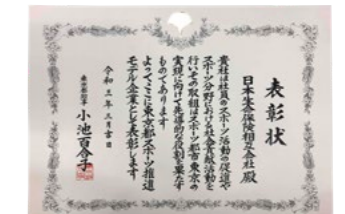 表彰状
日本生命保険相互会社殿
貴社は社員のスポーツ活動の促進や
スポーツ分野における社会貢献活動を
行いその取組はスポーツ都市東京の
実現に向けて先導的な役割を果たす
ものであります
よってここに東京都スポーツ推進
モデル企業として表彰します
令和三年三月吉日
東京都知事 小池百合子